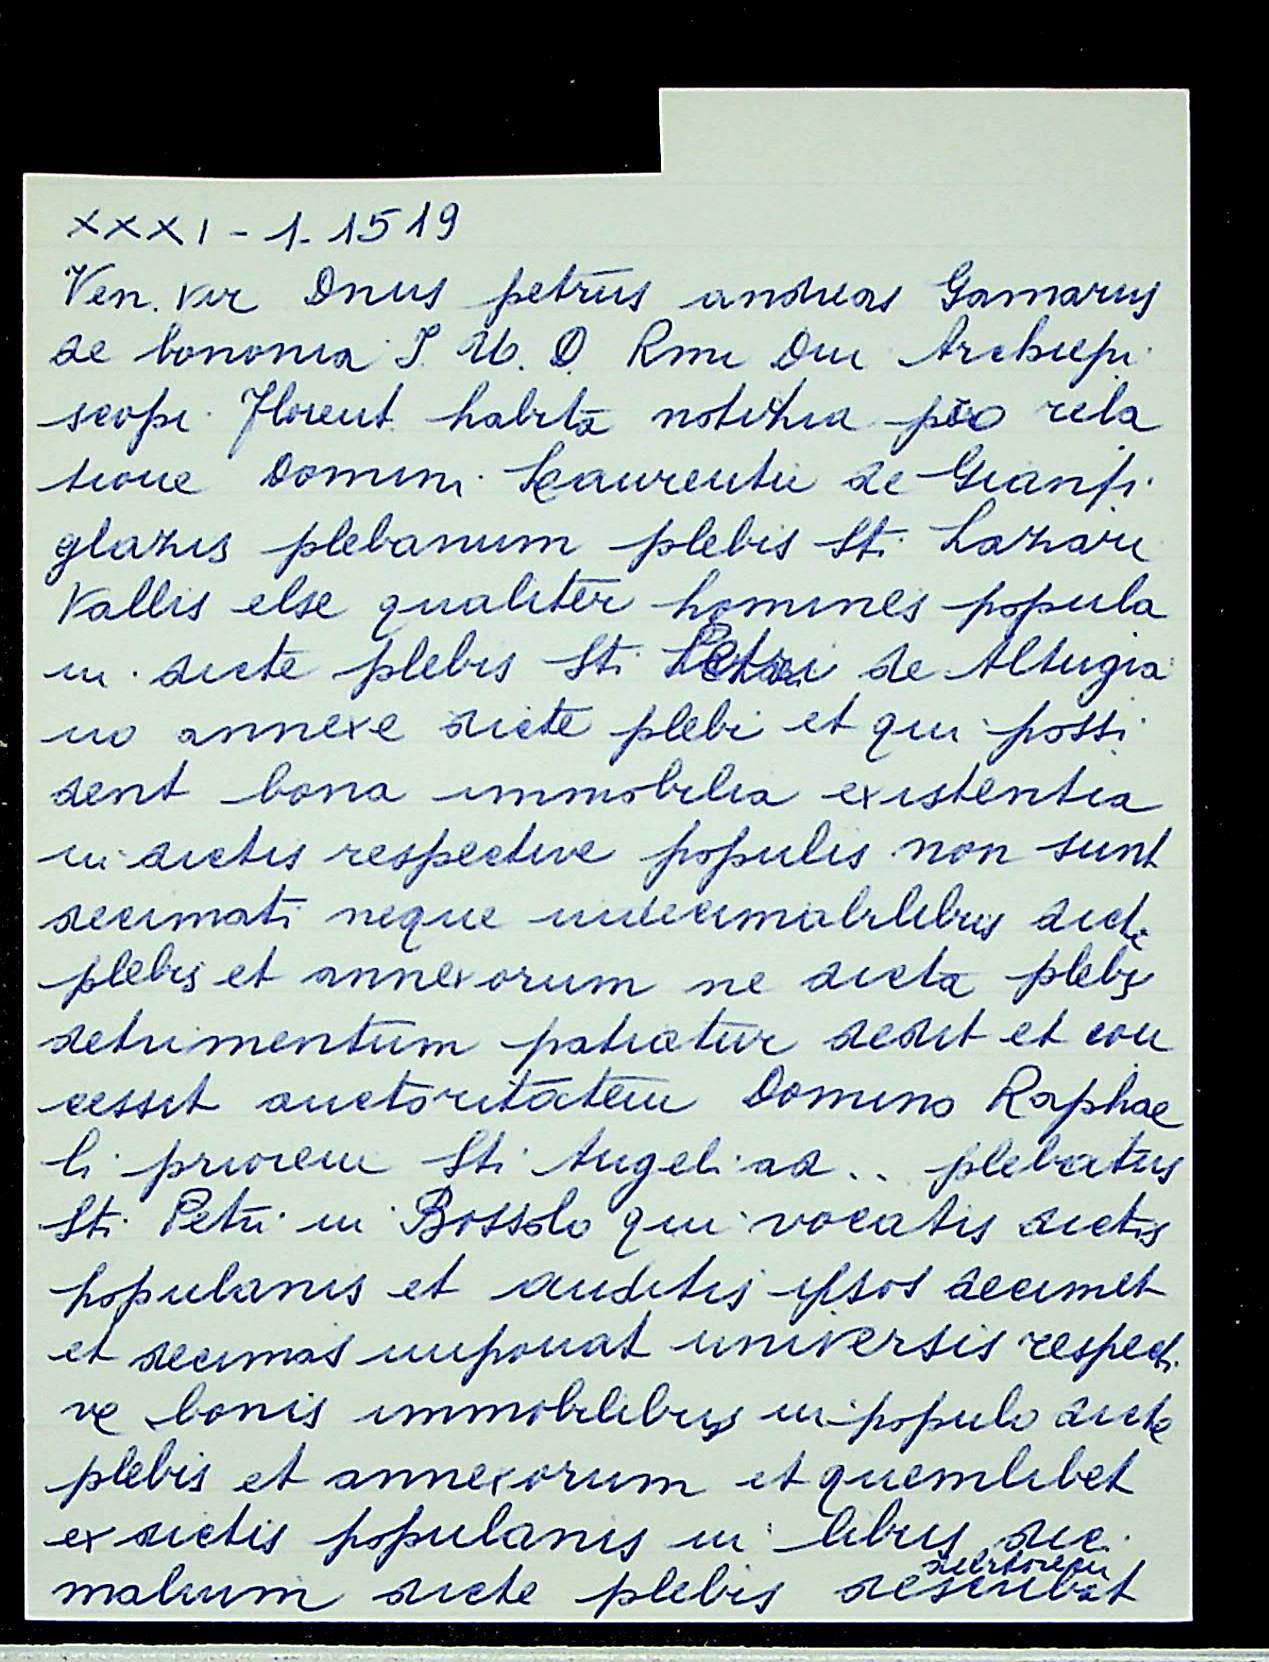 XXXI - 1. 1519
Ven. Vir Dnus petrus andreas Gamarus
de bononia J. U. D. Rmi Dni Archiepi
scopi Florent habita notitia pro rela
tione Domini Laurentii de Gianfi
gliazis plebanum plebis Sti Lazari
Vallis else qualiter homines popula
ni dicte plebis Sti Petri de Altugia
no annexe dicte plebi et qui possi
dent bona immobilia existentia
in dictis respective populis non sunt
decimati neque indecimabilibus dicte
plebis et annexorum ne dicta plebs
detrimentum patiatur dedit et con
cessit auctoritatem Domino Raphae
li priorem Sti Angeli ad .. plebatus
Sti Petri in Bossolo qui vocatis dictis
populanis et auditis ipsos decimet
et decimas imponat universis respecti
ve bonis immobilibus in populo dicte
plebis et annexorum et quemlibet
ex dictis populanis in libris deci
debitorem
malium dicte plebis describat